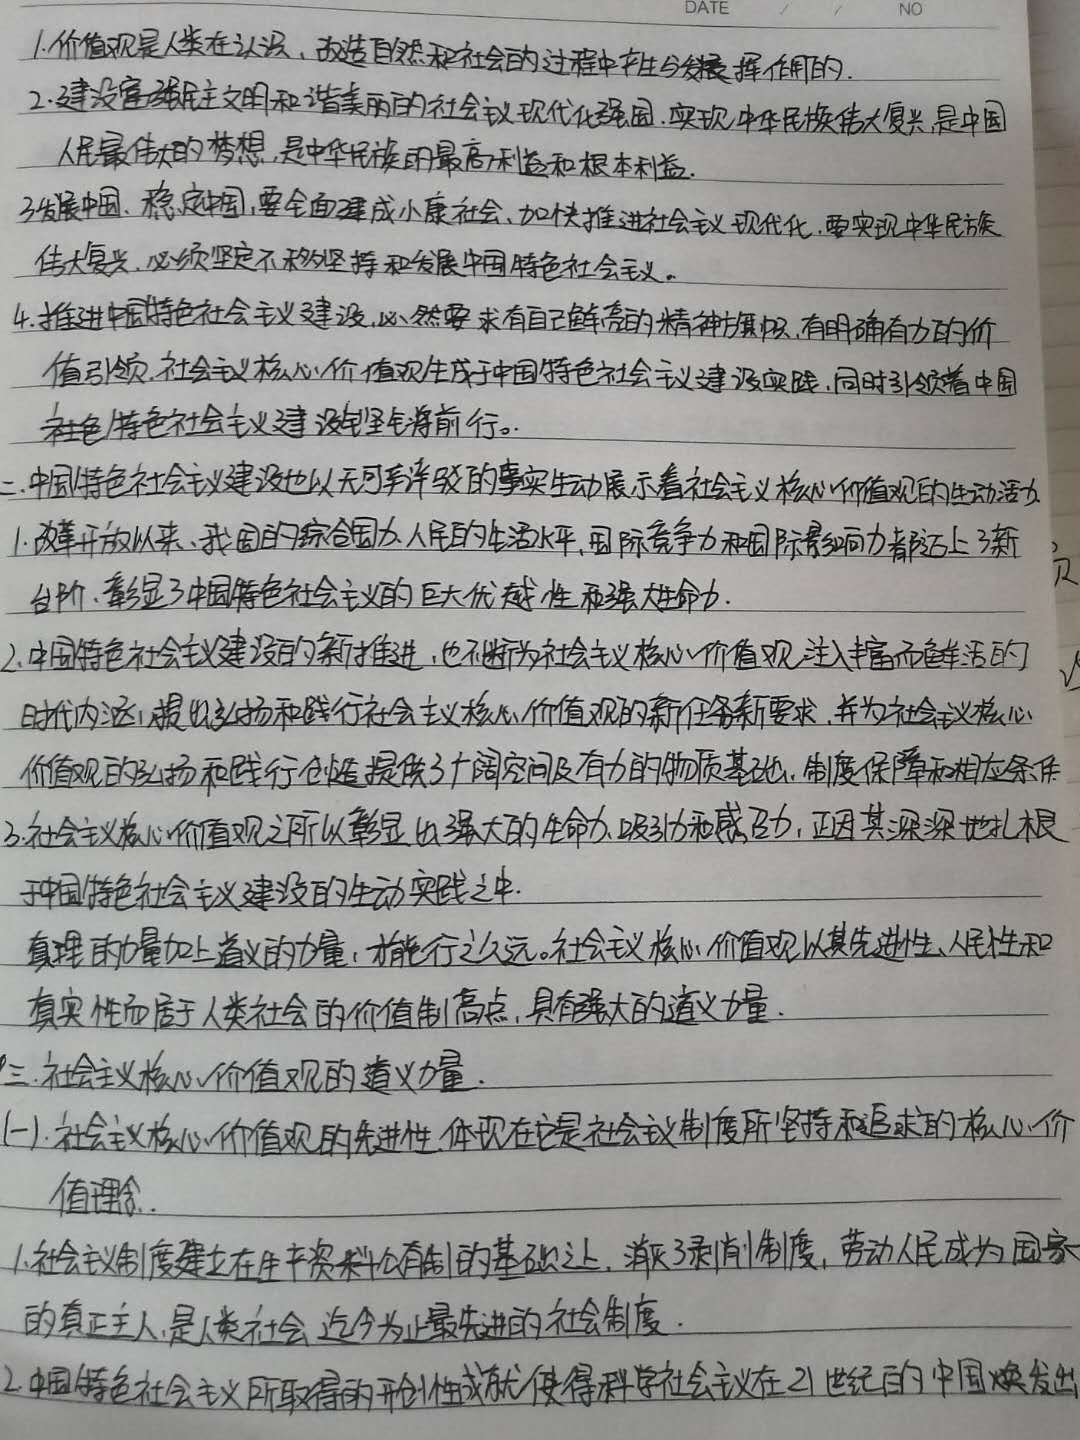 DATE / / NO
1.价值观是人类在认识、改造自然和社会的过程中产生与发展挥作用的.
2.建设富强民主文明和谐美丽的社会主义现代化强国.实现中华民族伟大复兴,是中国
人民最伟大的梦想,是中华民族的最高利益和根本利益.
3发展中国、稳定中国,要全面建成小康社会、加快推进社会主义现代化.要实现中华民族
伟大复兴,必须坚定不移坚持和发展中国特色社会主义。
4.推进中国特色社会主义建设,必然要求有自己鲜亮的精神旗帜,有明确有力的价
值引领.社会主义核心价值观生成于中国特色社会主义建设实践,同时引领着中国
特色社会主义建设前行。
二.中国特色社会主义建设也以无可辩驳的事实生动展示着社会主义核心价值观的生动活力
1.改革开放以来、我国的综合国力、人民的生活水平,国际竞争力和国际影响力都迈上了新
台阶、彰显了中国特色社会主义的巨大优越性和强大生命力.
2.中国特色社会主义建设的新推进,也不断为社会主义核心价值观注入丰富而鲜活的
时代内涵,提出弘扬和践行社会主义核心价值观的新任务新要求,并为社会主义核心
价值观的弘扬和践行创造提供了广阔空间及有力的物质基础、制度保障和相应条件
3.社会主义核心价值观之所以彰显出强大的生命力、吸引力和感召力,正因其深深地扎根
于中国特色社会主义建设的生动实践之中.
真理的力量加上道义的力量,才能行之久远。社会主义核心价值观以其先进性、人民性和
真实性而居于人类社会的价值制高点,具有强大的道义力量.
三.社会主义核心价值观的道义力量.
(一).社会主义核心价值观的先进性,体现在它是社会主义制度所坚持和追求的核心价
值理念.
1.社会主义制度建立在生产资料公有制的基础之上,消灭了剥削制度,劳动人民成为国家
的真正主人,是人类社会迄今为止最先进的社会制度.
2.中国特色社会主义所取得的开创性成就使得科学社会主义在21世纪的中国焕发出